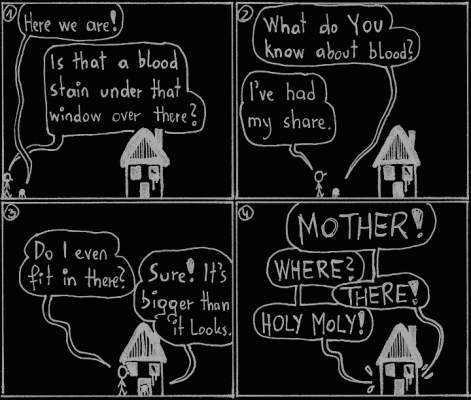 1
Here we are!
Is that a blood
stain under that
window over there?
2
What do YOU
know about blood?
I've had
my share.
3
Do I even
fit in there?
Sure! It's
bigger than
it Looks.
4
MOTHER!
WHERE?
THERE!
HOLY MOLY!